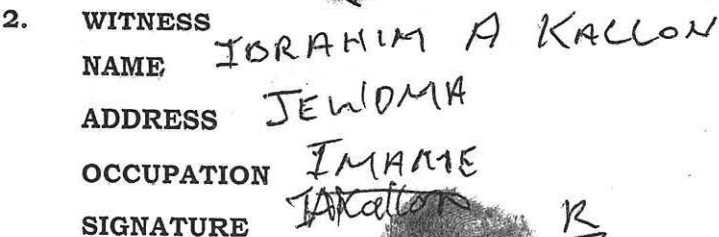 2. WITNESS
NAME IBRAHIM A KALLON
ADDRESS JEWOMA
OCCUPATION IMAME
SIGNATURE IAKallon R